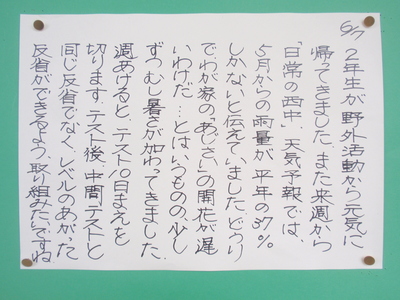 6/7
2年生が野外活動から元気に
帰ってきました。また来週から
「日常の西中」、天気予報では、
5月からの雨量が平年の37%
しかないと伝えていました。どうり
でわが家の「あじさい」の開花が遅
いわけだ…とはいうものの、少し
ずつむし暑さが加わってきました。
週あけると、テスト10日まえを
切ります。テスト後、中間テストと
同じ反省でなく、レベルのあがった
反省ができるよう、取り組みたいですね